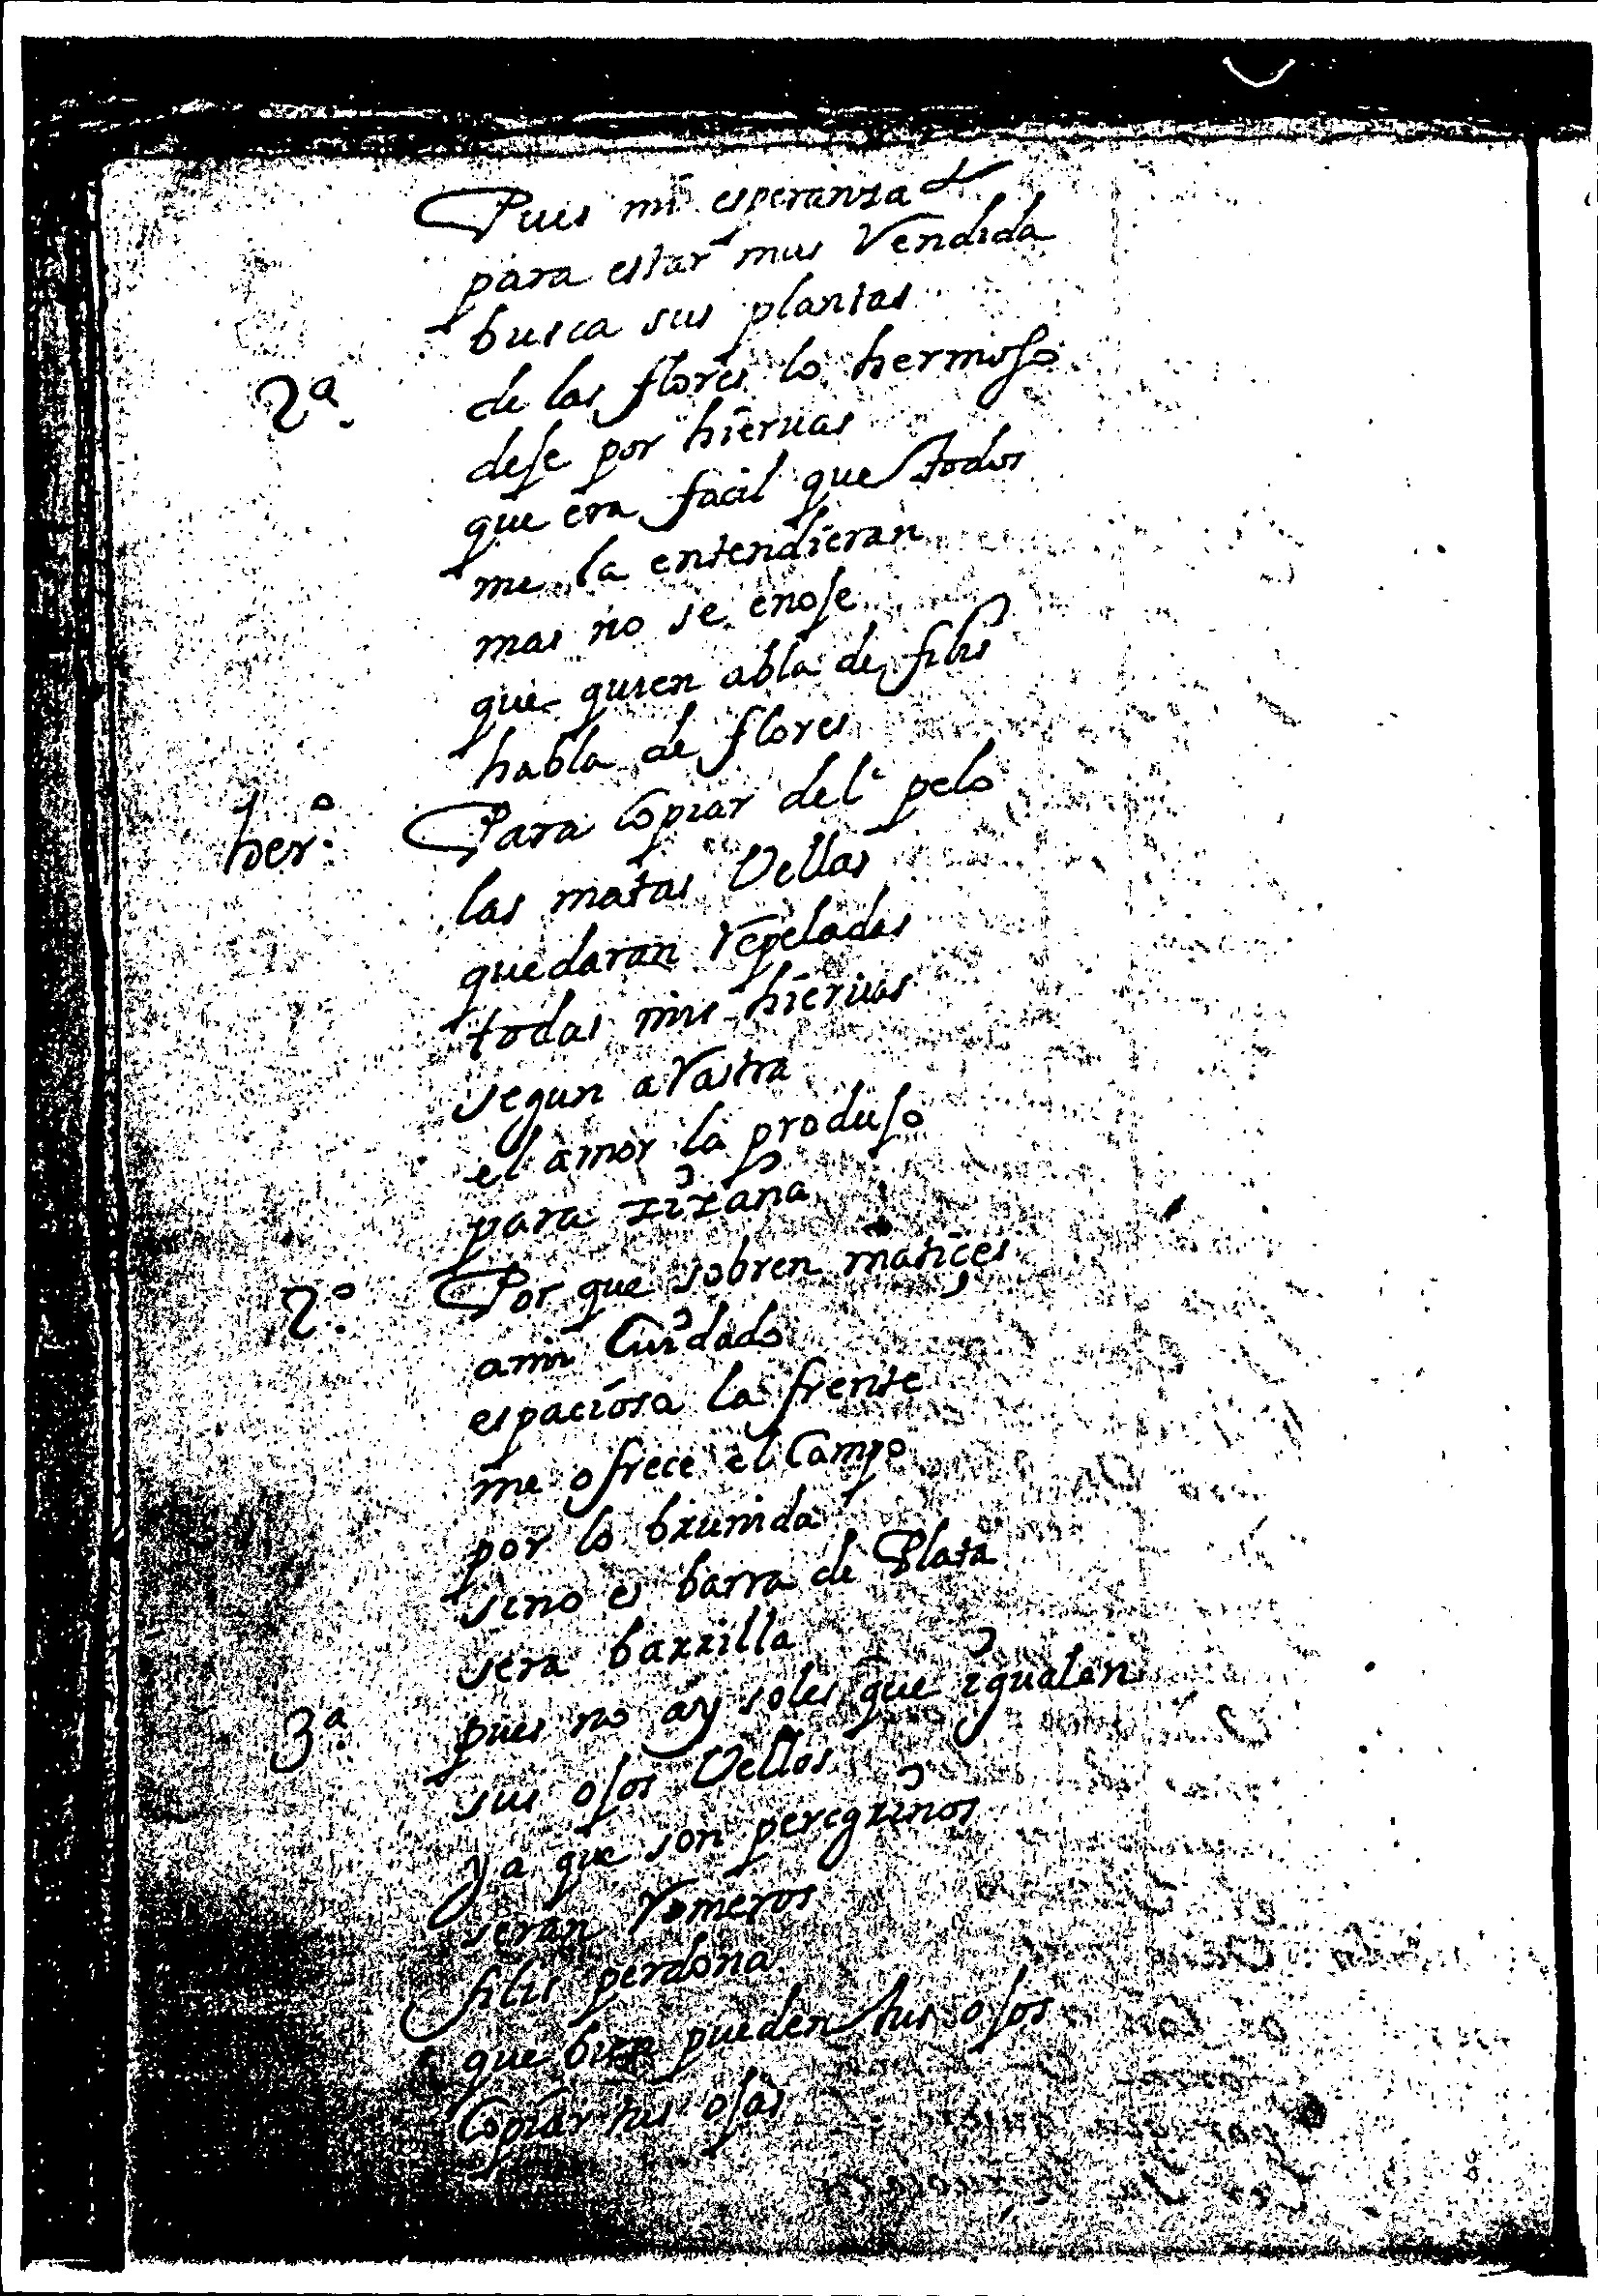 Pues mi esperanza
para estar mas Vendida
busca sus plantas
2ª de las flores lo hermoso
dese por hieruas
que era facil que todos
me la entendieran
mas no se enoje
que quien abla de filis
habla de flores
her.º Para Copiar del pelo
las matas Vellas
quedaran repeladas
todas mis hieruas
segun arrastra
el amor la produjo
para zizaña
2.º Por que sobren matiçes
a mi Cuidado
espaciosa la frente
me ofrece el Campo
por lo brunida
sino es barra de Plata
sera barrilla
3ª pues no ay soles que igualen
sus ojos Vellos
ya que son peregrinos
seran romeros
filis perdona
que bien pueden tus ojos
Copiar tus ojas